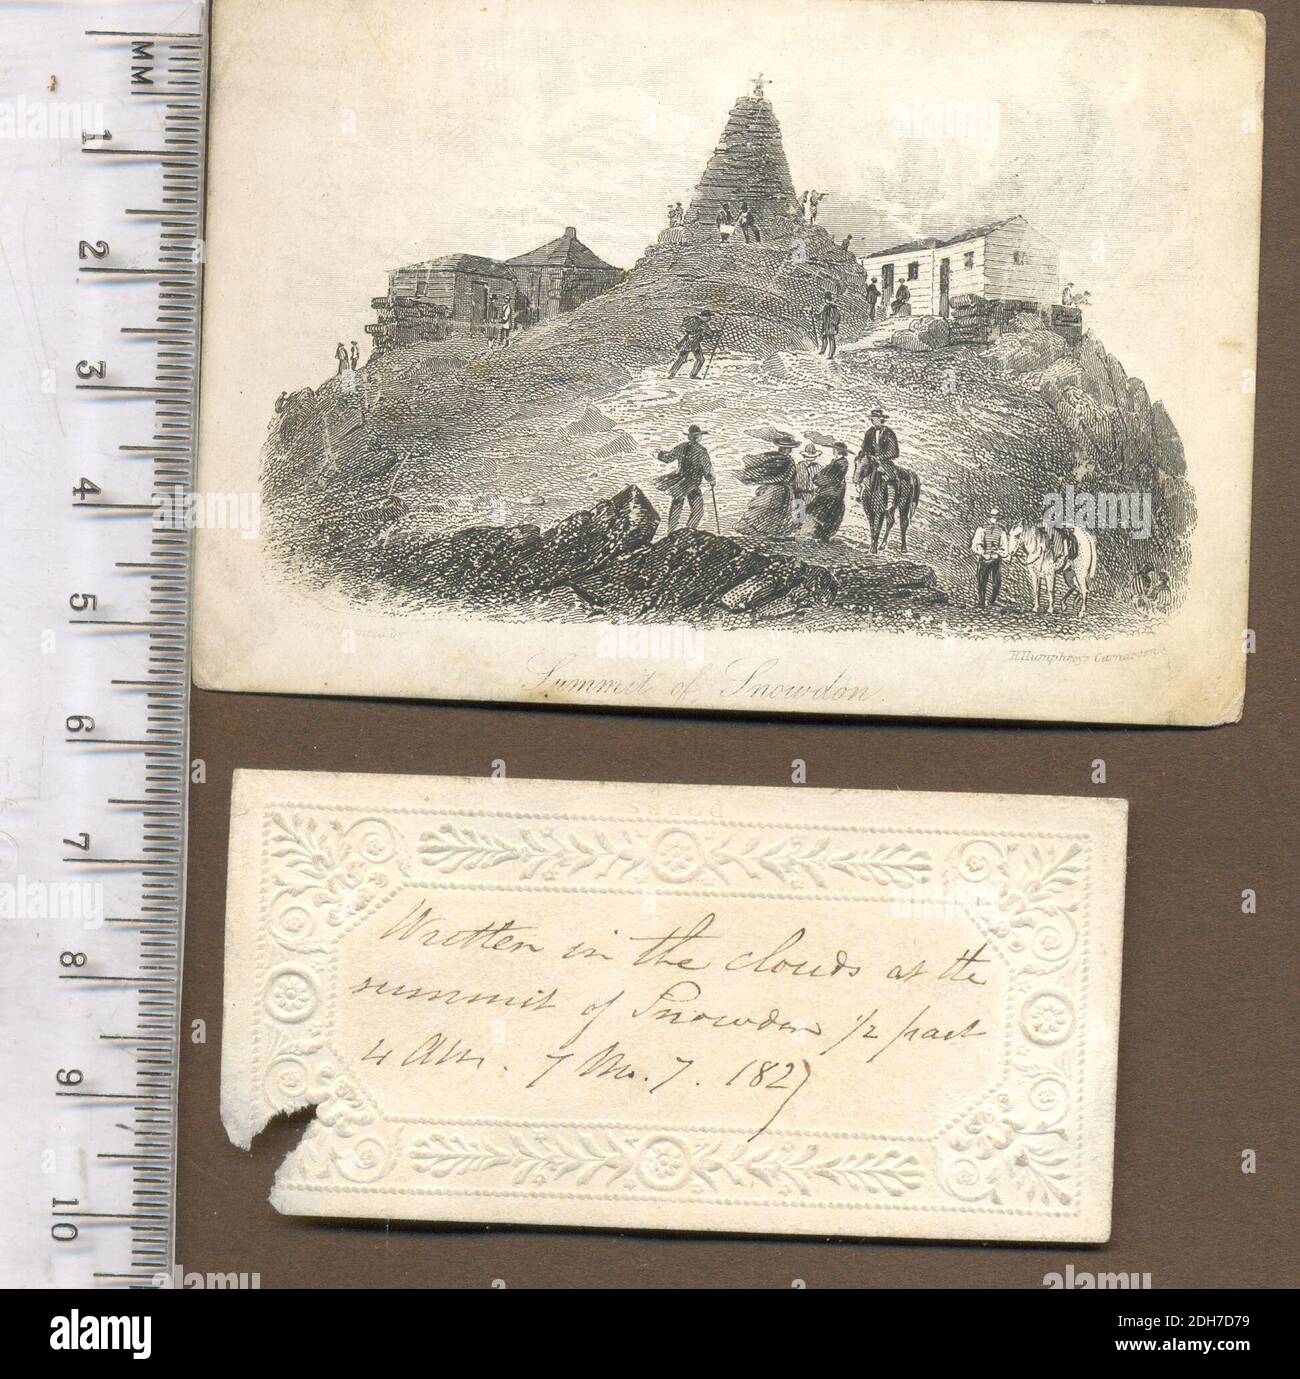 MM
1
2
3
4
5
6
7
8
9
10
H Humphreys Carnarvon
Summit of Snowdon.
DOBBS
Written in the clouds at the
summit of Snowdon 1/2 past
4 AM. 7 Mo. 7. 1827
alamy
Image ID: 2DH7D79
www.alamy.com